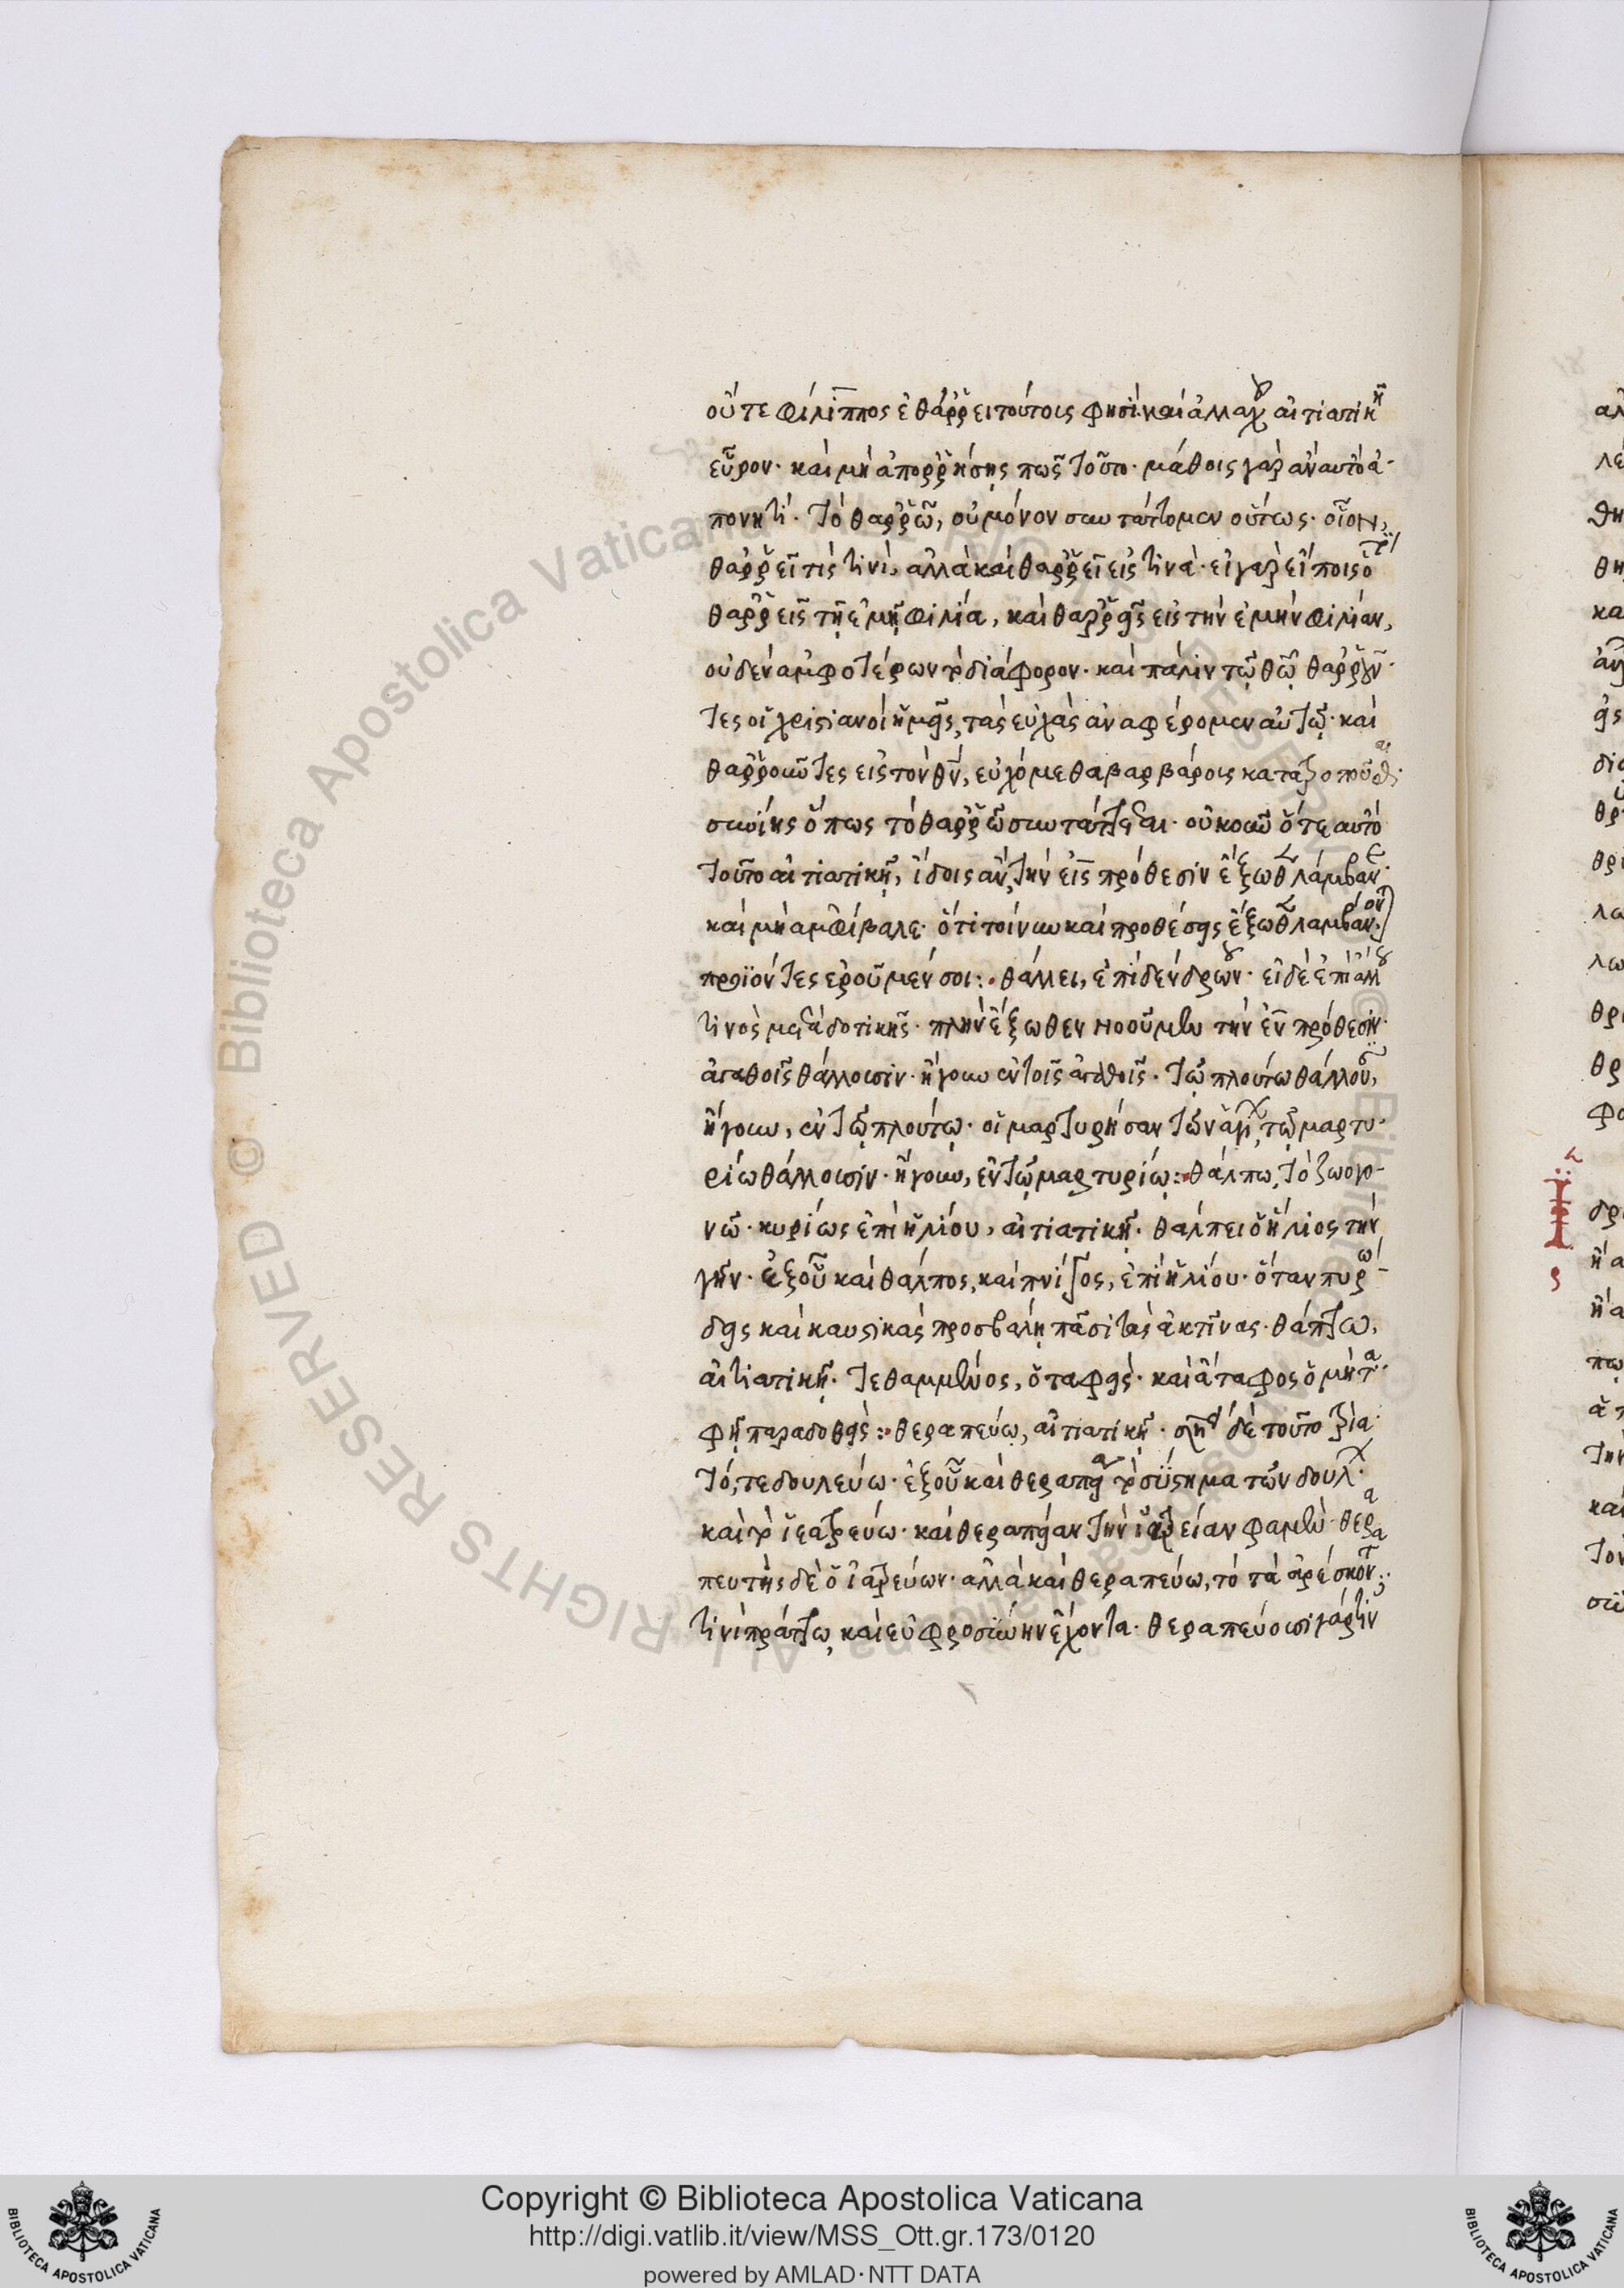 οὔτε φίλιππος ἐθάρρει τούτοις φησί. καὶ ἀλλαχοῦ αἰτιατικῆ
εὗρον· καὶ μὴ ἀπορρήσης πῶς τοῦτο· μάθοις γὰρ ἂν αὐτὸ ἀ-
πονητί. τὸ θαρρῶ, οὐ μόνον συντάττομεν οὕτως· οἷον,
θαρρεῖ τίς τινί, ἀλλὰ καὶ θαρρεῖ εἰς τινὰ· εἰ γὰρ εἴποις
θαρρεῖς τῇ ἐμῇ φιλία, καὶ θαρρεῖς εἰς τὴν ἐμὴν φιλίαν,
οὐδὲν ἀμφοτέρων τὸ διάφορον· καὶ πάλιν τῷ θῷ θαρροῦν-
τες οἱ χριστιανοὶ ἡμεῖς, τὰς εὐχὰς ἀναφέρομεν αὐτῷ· καὶ
θαρροῦντες εἰς τὸν θν, εὐχόμεθα βαρβάροις
συνίης ὅπως τὸ θαρρῶ συντάττεται· οὐκοῦν ὅτε αὐτὸ
τοῦτο αἰτιατικῇ, ἴδοις ἂν, τὴν εἰς πρόθεσιν ἔξωθεν λαμβάνειν·
καὶ μὴ ἀμφίβαλε· ὅτι τοίνυν καὶ προθέσεις ἔξωθεν λαμβάνον
προϊόντες ἐροῦμέν σοι:· θάλλει, ἐπὶ δένδρου· εἰ δὲ ἐπὶ ἄλλου
τινὸς μετὰ δοτικῆς· πλὴν ἔξωθεν νοοῦμεν τὴν ἐν πρόθεσιν·
ἀγαθοῖς θάλλουσιν· ἤγουν ἐν τοῖς ἀγαθοῖς. τῷ πλούτω θάλλουσι,
ἤγουν, ἐν τῷ πλούτῳ· οἱ μαρτυρήσαντες τῶν ἁγίων, τῷ μαρτυ-
ρίω θάλλουσιν· ἤγουν, ἐν τῷ μαρτυρίῳ:· θάλπω, τὸ ζωογο-
νῶ· κυρίως ἐπὶ ἡλίου, αἰτιατικῇ. θάλπει ὁ ἥλιος τὴν
γῆν· ἐξ οὗ καὶ θάλπος, καὶ πνίγος, ἐπὶ ἡλίου· ὅταν πυρώ-
δεις καὶ καυστικὰς προσβάλῃ πᾶσι τὰς ἀκτῖνας· θάπτω,
αἰτιατικῇ. τεθαμμένος, ὁ ταφείς· καὶ ἄταφος ὁ μὴ τα-
φῇ παραδοθείς:· θεραπεύω, αἰτιατικῇ· δὲ τοῦτο τρία·
τό, τε δουλεύω· ἐξ οὗ καὶ θεραπεία τὸ σύστημα τῶν δούλων·
καὶ τὸ ἰατρεύω· καὶ θεραπείαν τὴν ἰατρείαν φαμὲν· θερα-
πευτὴς δὲ ὁ ἰατρεύων· ἀλλὰ καὶ θεραπεύω, τὸ τὰ ἀρέσκοντα
τινὶ πράττω, καὶ εὐφροσύνην ἔχοντα· θεραπεύουσι γάρ τιν